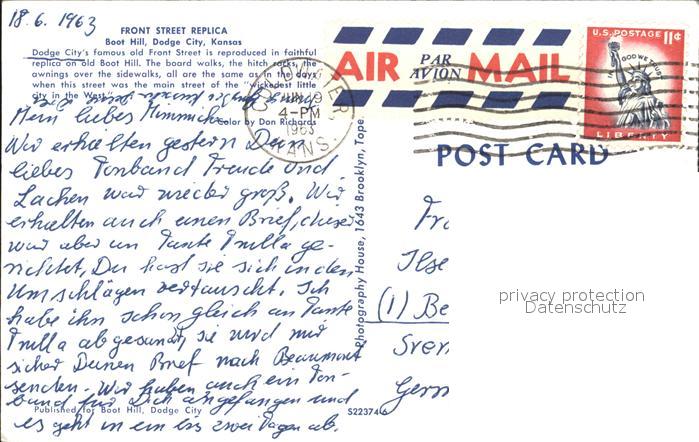 18.6.1963
FRONT STREET REPLICA
Boot Hill, Dodge City, Kansas
Dodge City's famous old Front Street is reproduced in faithful
replica on old Boot Hill. The board walks, the hitch racks, the
awnings over the sidewalks, all are the same as in the days
when this street was the main street of the "wickedest little
city in the West."
Color by Don Richards
Mein liebes Mimmich
Wir erhielten gestern Dein
liebes Tonband Freude und
Lachen war wieder groß. Wir
erhielten auch einen Brief, dieser
war aber an Tante Trulla ge-
richtet, Du hast sie sich in den
Umschlägen vertauscht. Ich
habe ihn schon gleich an Tante
Trulla abgesandt, sie wird mir
sicher Deinen Brief nach Beaumont
senden. Wir haben auch ein Ton-
band für Dich angefangen und
es geht in ein bis zwei Tagen ab.
Published for Boot Hill, Dodge City
S22374
Photography House, 1643 Brooklyn, Tope
AIR PAR AVION MAIL
JUN 19
4-PM
1963
KANS.
U.S. POSTAGE 11¢
IN GOD WE TRUST
LIBERTY
POST CARD
Fr
Ilse
(1) Be
Sven
Germ
privacy protection
Datenschutz